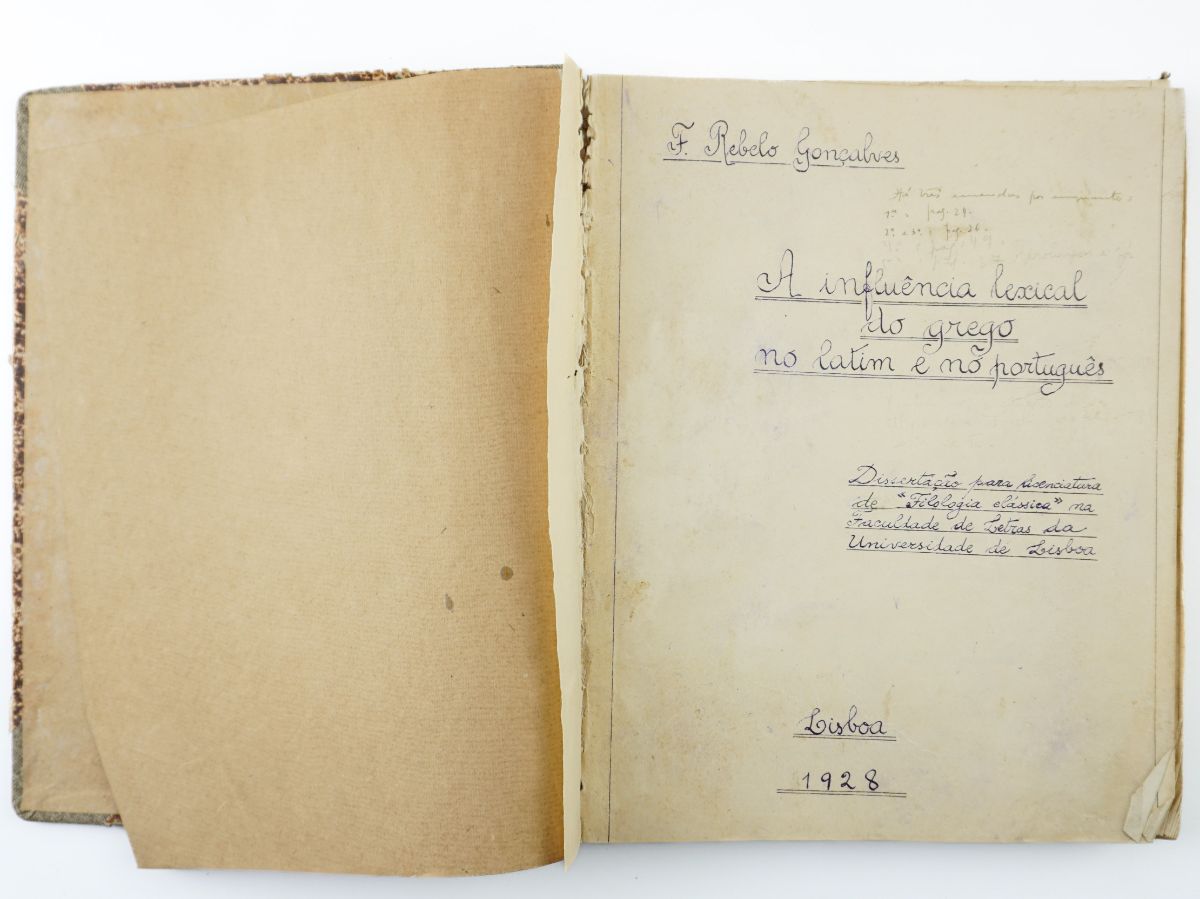 F. Rebelo Gonçalves
Há três emendas por enquanto:
1ª, pag. 29.
2ª e 3ª, pag. 36.
A influência lexical
do grego
no latim e no português
Dissertação para licenciatura
de "Filologia clássica" na
Faculdade de Letras da
Universidade de Lisboa
Lisboa
1928